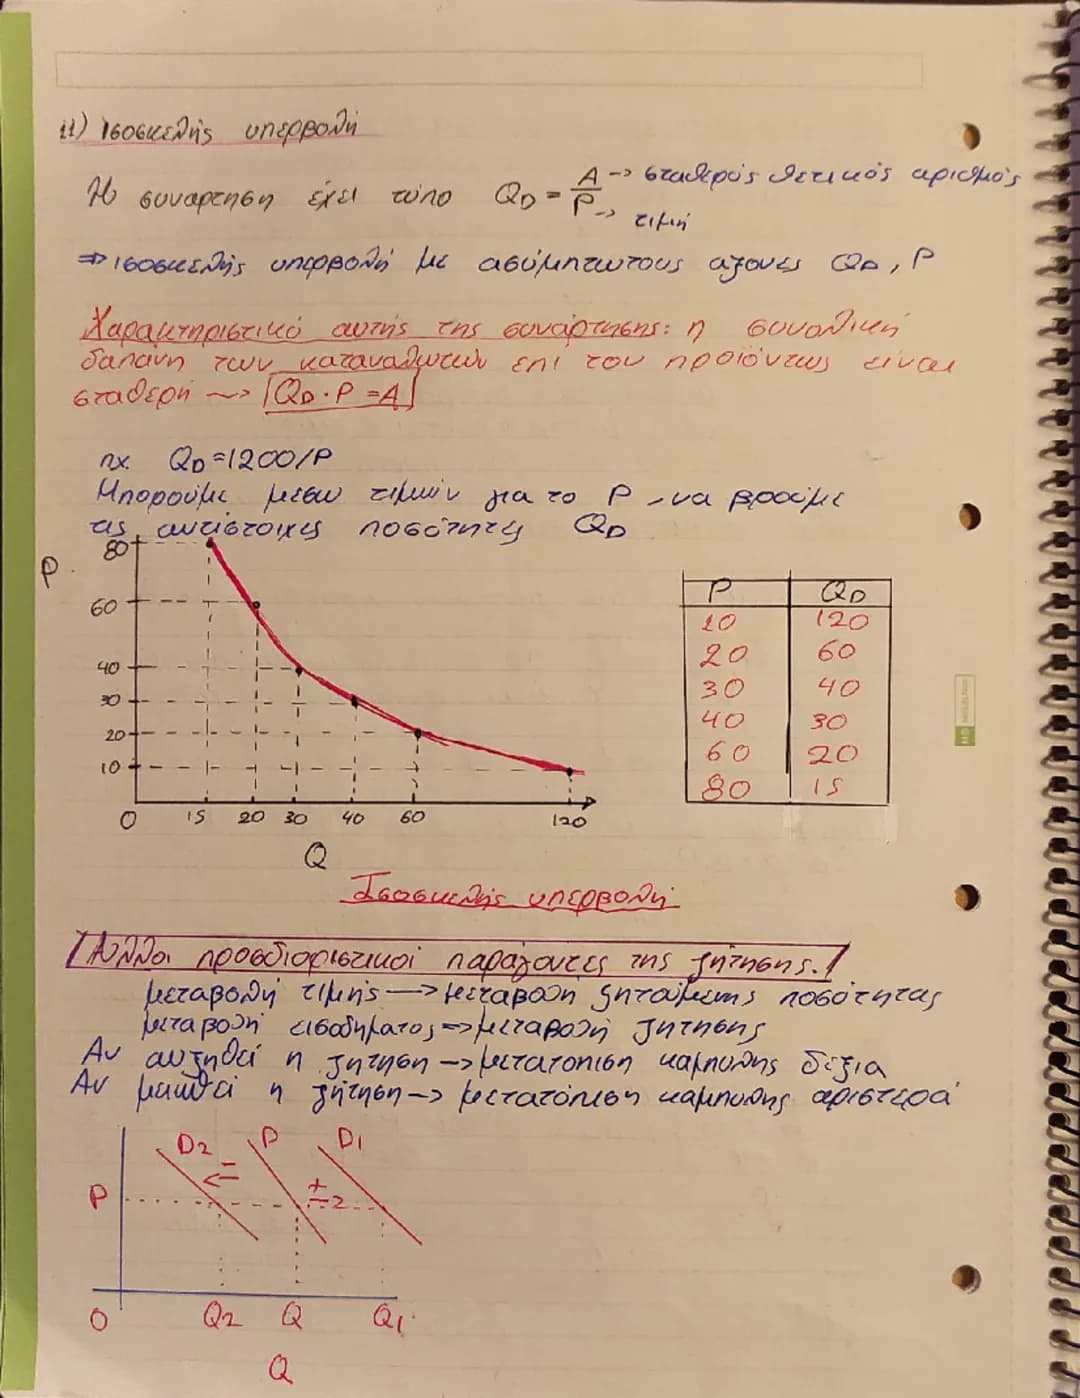 ii) Ισοσκελής υπερβολή
Η συνάρτηση έχει τύπο QD = A/P
A -> σταθερός θετικός αριθμός
P -> τιμή
=> ισοσκελής υπερβολή με ασύμπτωτους άξονες QD, P
Χαρακτηριστικό αυτής της συνάρτησης: η συνολική
δαπάνη των καταναλωτών επί του προϊόντως είναι
σταθερή ~> QD·P=A
πχ. QD=1200/P
Μπορούμε μέσω τιμών για το P, να βρούμε
τις αντίστοιχες ποσότητες QD
P
80
60
40
30
20
10
0 15 20 30 40 60 120
Q
P QD
10 120
20 60
30 40
40 30
60 20
80 15
Ισοσκελής υπερβολή
Άλλοι προσδιοριστικοί παράγοντες της ζήτησης.
μεταβολή τιμής -> μεταβολή ζητούμενης ποσότητας
μεταβολή εισοδήματος => μεταβολή ζήτησης
Αν αυξηθεί η ζήτηση -> μετατόπιση καμπύλης δεξιά
Αν μειωθεί η ζήτηση -> μετατόπιση καμπύλης αριστερά
D2 P D1
- +
P
0 Q2 Q Q1
Q